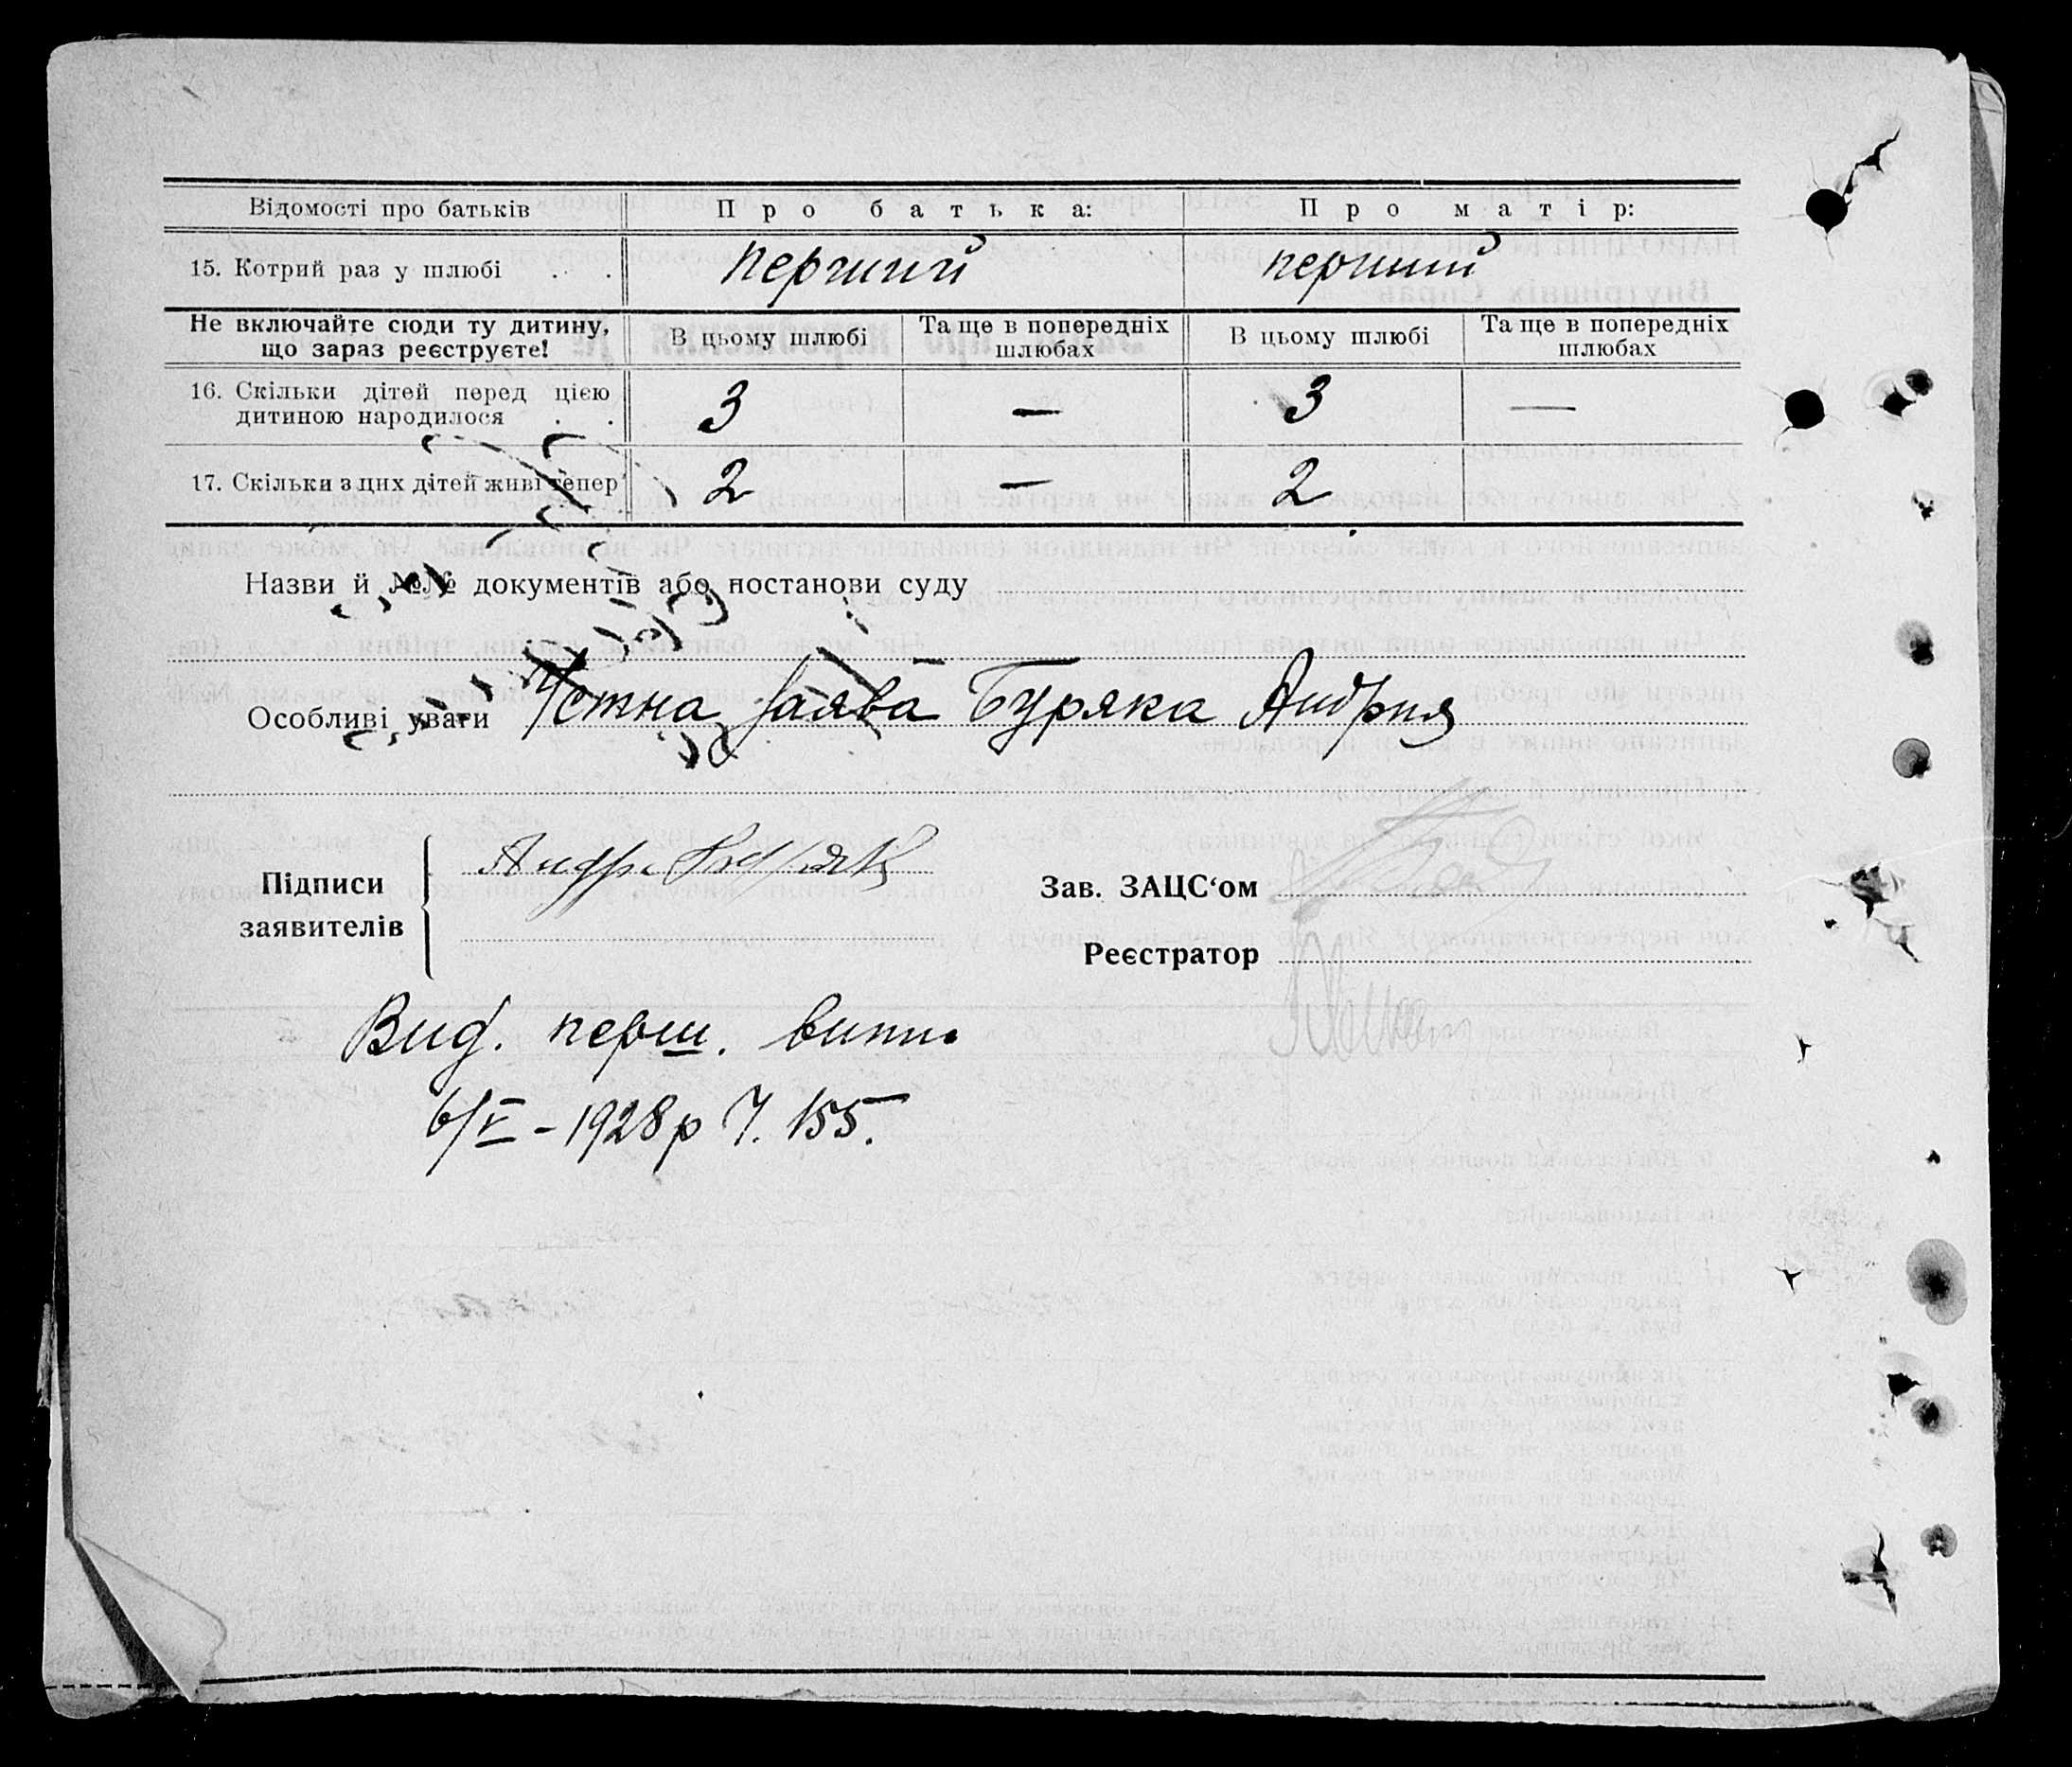 Відомості про батьків Про батька: Про матір:
15. Котрий раз у шлюбі . . перший перший
Не включайте сюди ту дитину, що зараз реєструєте! В цьому шлюбі Та ще в попередніх шлюбах В цьому шлюбі Та ще в попередніх шлюбах
16. Скільки дітей перед цією дитиною народилося . . 3 — 3 —
17. Скільки з цих дітей живі тепер 2 — 2
Назви й №№ документів або постанови суду
Особливі уваги Устна заява Буряка Андрия
Підписи заявителів Андр. Буряк
Зав. ЗАЦС‘ом
Реєстратор
Вид. перш. випи.
6/V – 1928 р Ч. 155.